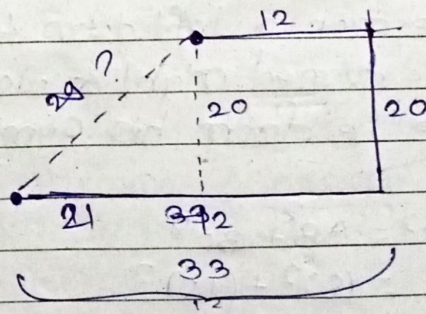 12
?
29
20
20
21
33